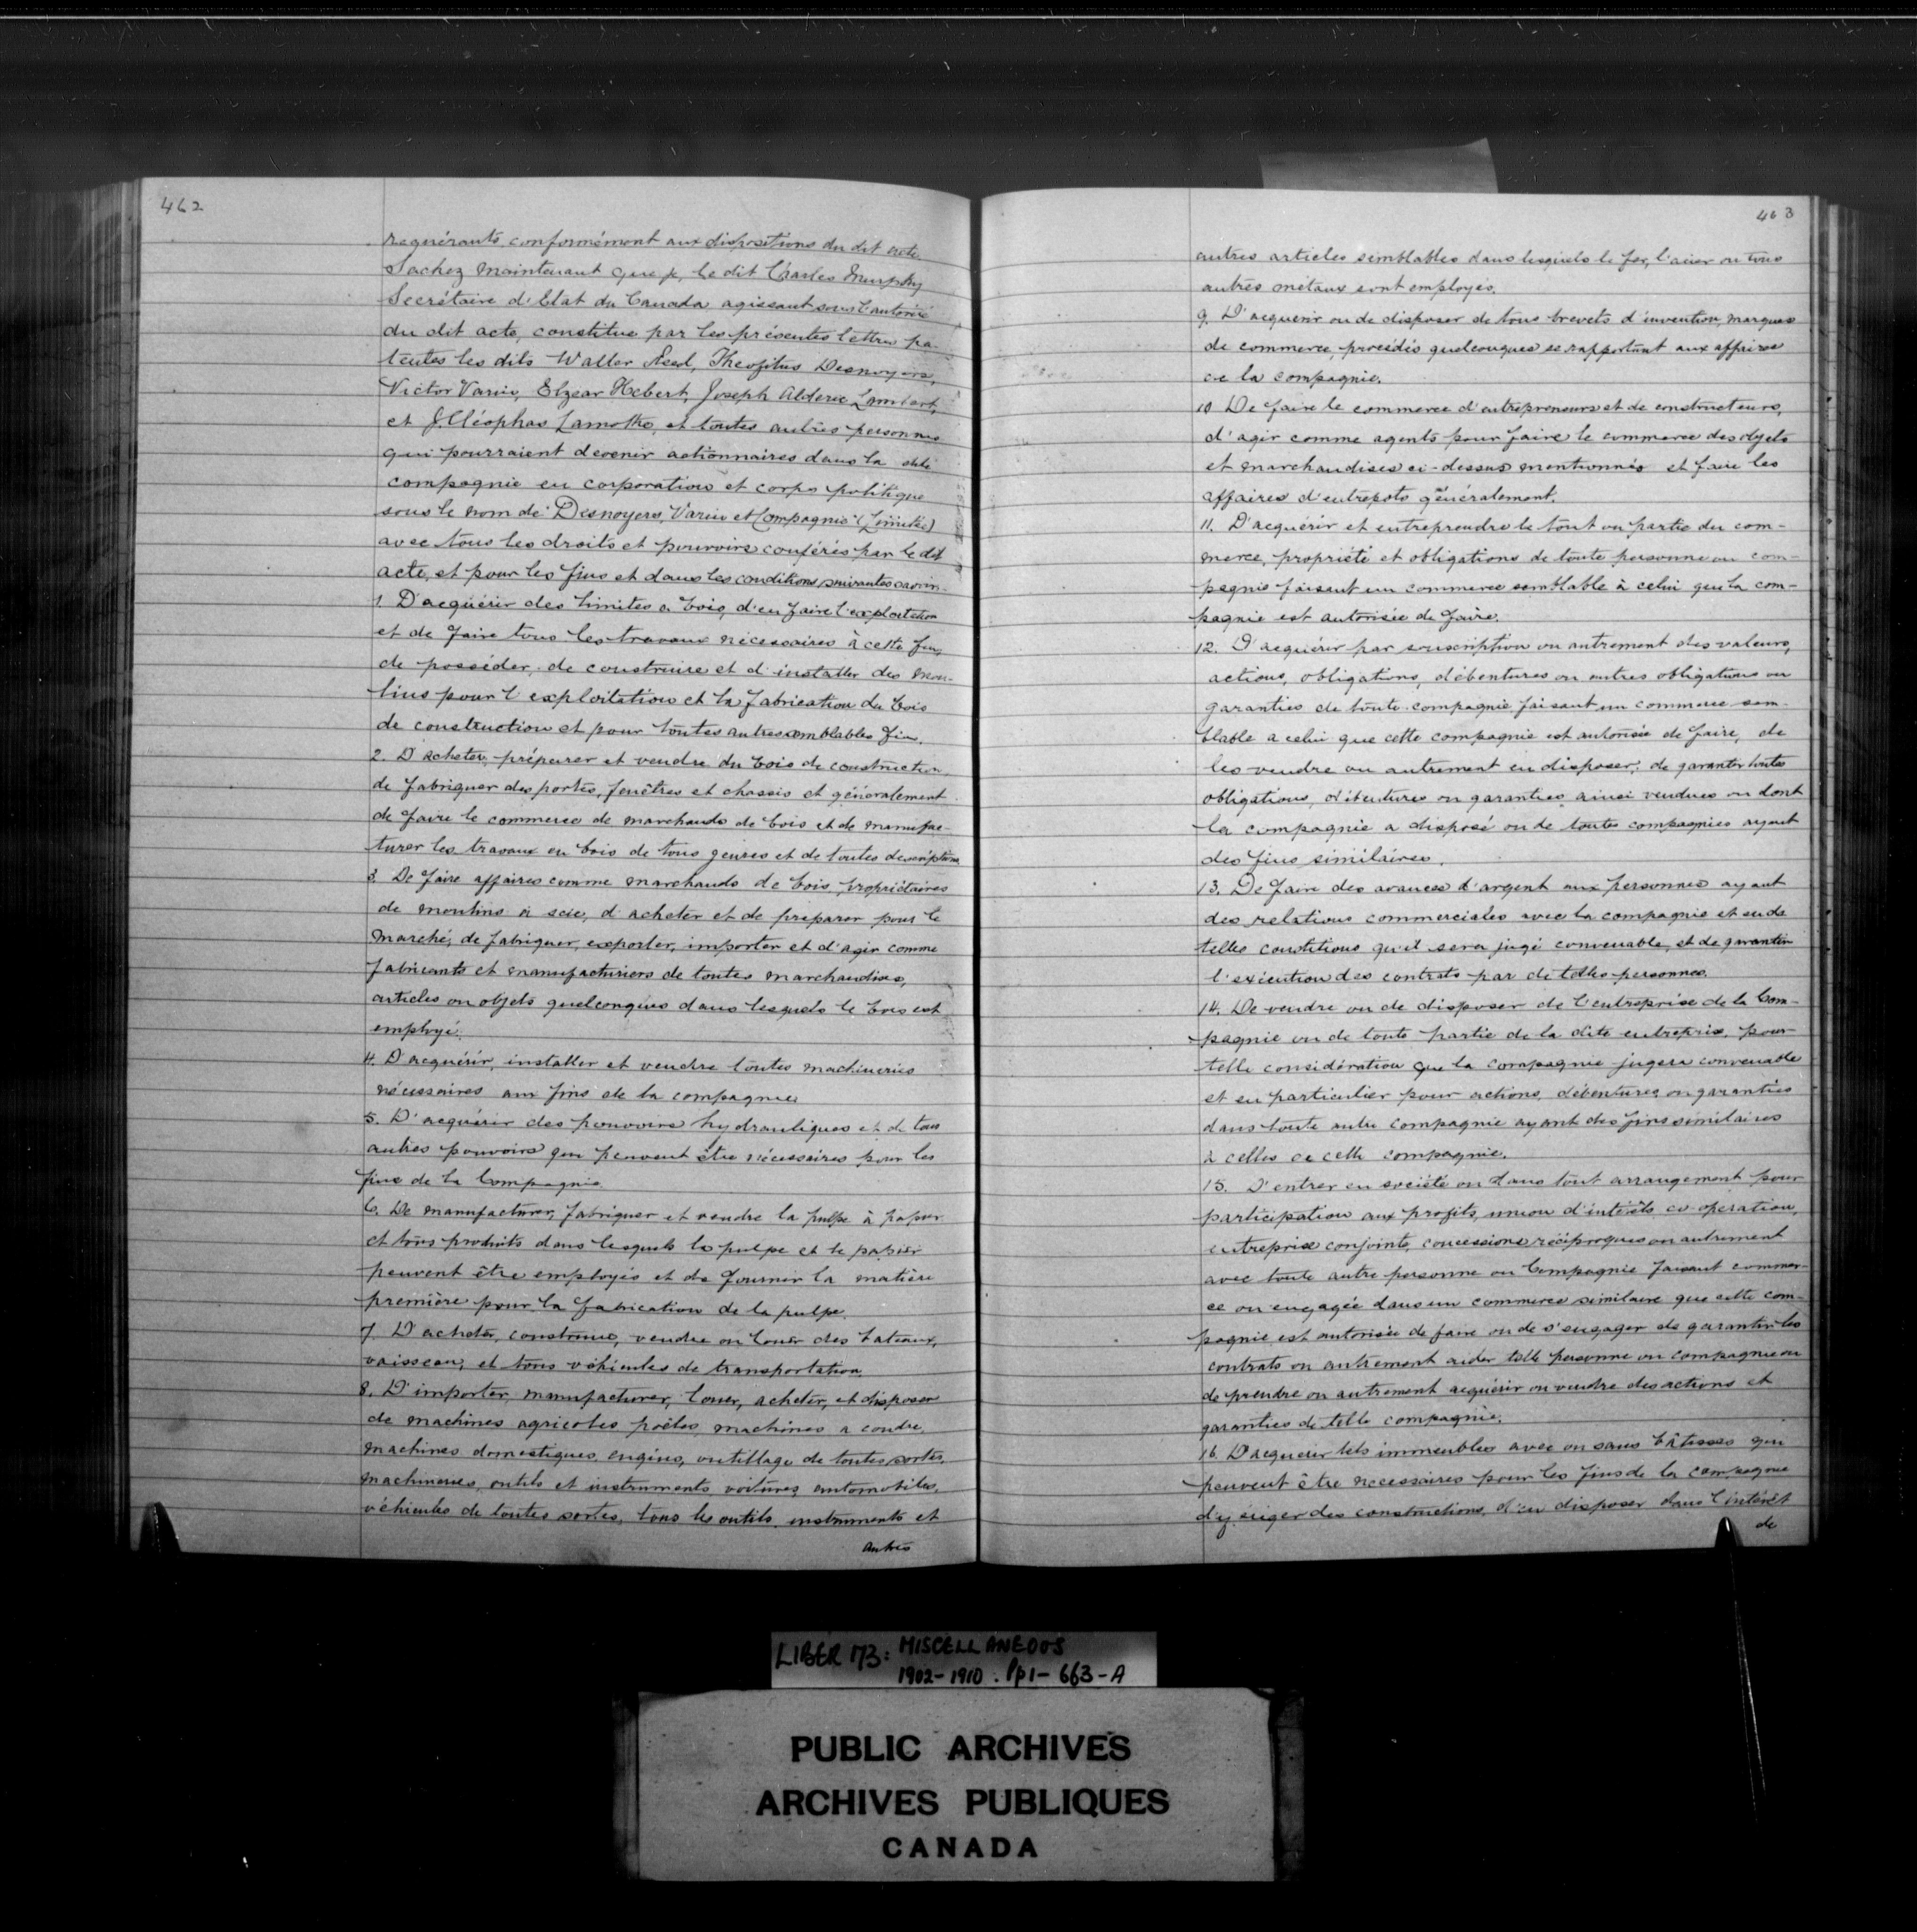 462
requérants, conformément aux dispositions du dit acte
Sachez maintenant que je, le dit Charles Murphy
Secrétaire d'Etat du Canada agissant sous l'autorité
du dit acte, constitue par les présentes lettres pa-
tentes les dits Walter Reed, Theofitus Desnoyers,
Victor Varin, Elzear Hebert, Joseph Alderic Lambert,
et J. Cléophas Lamothe, et toutes autres personnes
qui pourraient devenir actionnaires dans la dite
compagnie en corporation et corps politique
sous le nom de Desnoyers, Varin et Compagnie (Limitée)
avec tous les droits et pouvoirs conférés par le dit
acte, et pour les fins et dans les conditions suivantes savoir.
1. D'acquérir des limites a bois, d'en faire l'exploitation
et de faire tous les travaux nécessaires à cette fin,
de posséder, de construire et d'installer des mou-
lins pour l'exploitation et la fabrication du bois
de construction et pour toutes autres semblables fin.
2. D'acheter, préparer et vendre du bois de construction,
de fabriquer des portes, fenêtres et chassis et généralement
de faire le commerce de marchands de bois et de manufac-
turer les travaux en bois de tous genres et de toutes descriptions
3. De faire affaires comme marchands de bois, propriétaires
de moulins à scie, d'acheter et de préparer pour le
marché, de fabriquer, exporter, importer et d'agir comme
fabricants et manufacturiers de toutes marchandises,
articles ou objets quelconques dans lesquels le bois est
employé.
4. D'acquérir, installer et vendre toutes machineries
nécessaires aux fins de la compagnie
5. D'acquérir des pouvoirs hydrauliques et de tous
autres pouvoirs qui peuvent être nécessaires pour les
fins de la Compagnie.
6. De manufacturer, fabriquer et vendre la pulpe à papier
et tous produits dans lesquels la pulpe et le papier
peuvent être employés et de fournir la matière
première pour la fabrication de la pulpe.
7. D'acheter, construire, vendre ou louer des bateaux,
vaisseau, et tous véhicules de transportation.
8. D'importer, manufacturer, louer, acheter, et disposer
de machines agricoles poêles, machines a coudre,
machines domestiques, engins, outillage de toutes sortes,
machineries, outils et instruments, voitures, automobiles,
véhicules de toutes sortes, tous les outils, instruments et
autres
463
autres articles semblables dans lesquels le fer, l'acier ou tous
autres métaux sont employés.
9. D'acquérir ou de disposer de tous brevets d'invention, marques
de commerce, procédés quelconques se rapportant aux affaires
de la compagnie.
10 De faire le commerce d'entrepreneurs et de constructeurs,
d'agir comme agents pour faire le commerce des objets
et marchandises ci-dessus mentionnés et faire les
affaires d'entrepots généralement.
11. D'acquérir et entreprendre le tout ou partie du com-
merce, propriété et obligations de toute personne ou com-
pagnie faisant un commerce semblable à celui que la com-
pagnie est autorisée de faire.
12. D'acquérir par souscription ou autrement des valeurs,
actions, obligations, débentures ou autres obligations ou
garanties de toute compagnie faisant un commerce sem-
blable a celui que cette compagnie est autorisée de faire, de
les vendre ou autrement en disposer; de garantir toutes
obligations, débentures ou garanties ainsi vendues ou dont
la compagnie a disposé ou de toutes compagnies ayant
des fins similaires.
13. De faire des avances d'argent aux personnes ayant
des relations commerciales avec la compagnie et sur de
telles conditions qu'il sera jugé convenable, et de garantir
l'exécution des contrats par de telles personnes.
14. De vendre ou de disposer de l'entreprise de la Com-
pagnie ou de toute partie de la dite entreprise pour
telle considération que la compagnie jugera convenable
et en particulier pour actions, débentures, ou garanties
dans toute autre compagnie ayant des fins similaires
à celles de cette compagnie.
15. D'entrer en société ou dans tout arrangement pour
participation aux profits, union d'intérêts co-operation,
entreprise conjointe, concessions réciproques ou autrement
avec toute autre personne ou Compagnie faisant commer-
ce ou engagée dans un commerce similaire que cette com-
pagnie est autorisée de faire ou de s'engager de garantir les
contrats ou autrement aider telle personne ou compagnie ou
de prendre ou autrement acquérir ou vendre des actions et
garanties de telle compagnie.
16. D'acquerir tels immeubles avec ou sans bâtisses qui
peuvent être necessaires pour les fins de la compagnie
d'y ériger des constructions, d'en disposer dans l'intérêt
de
LIBER 173: MISCELLANEOUS
1902-1910. Pp1-663-A
PUBLIC ARCHIVES
ARCHIVES PUBLIQUES
CANADA